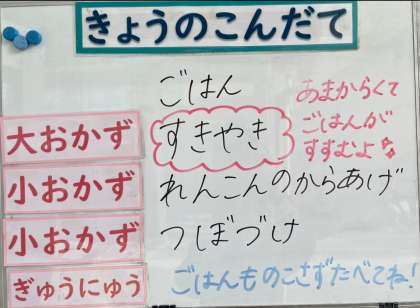 きょうのこんだて
ごはん
大おかず すきやき
小おかず れんこんのからあげ
小おかず つぼづけ
ぎゅうにゅう
あまからくて
ごはんが
すすむよ♪
ごはんものこさずたべてね!